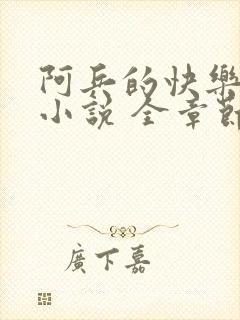 阿兵的快樂
小說 全章節
廣下嘉